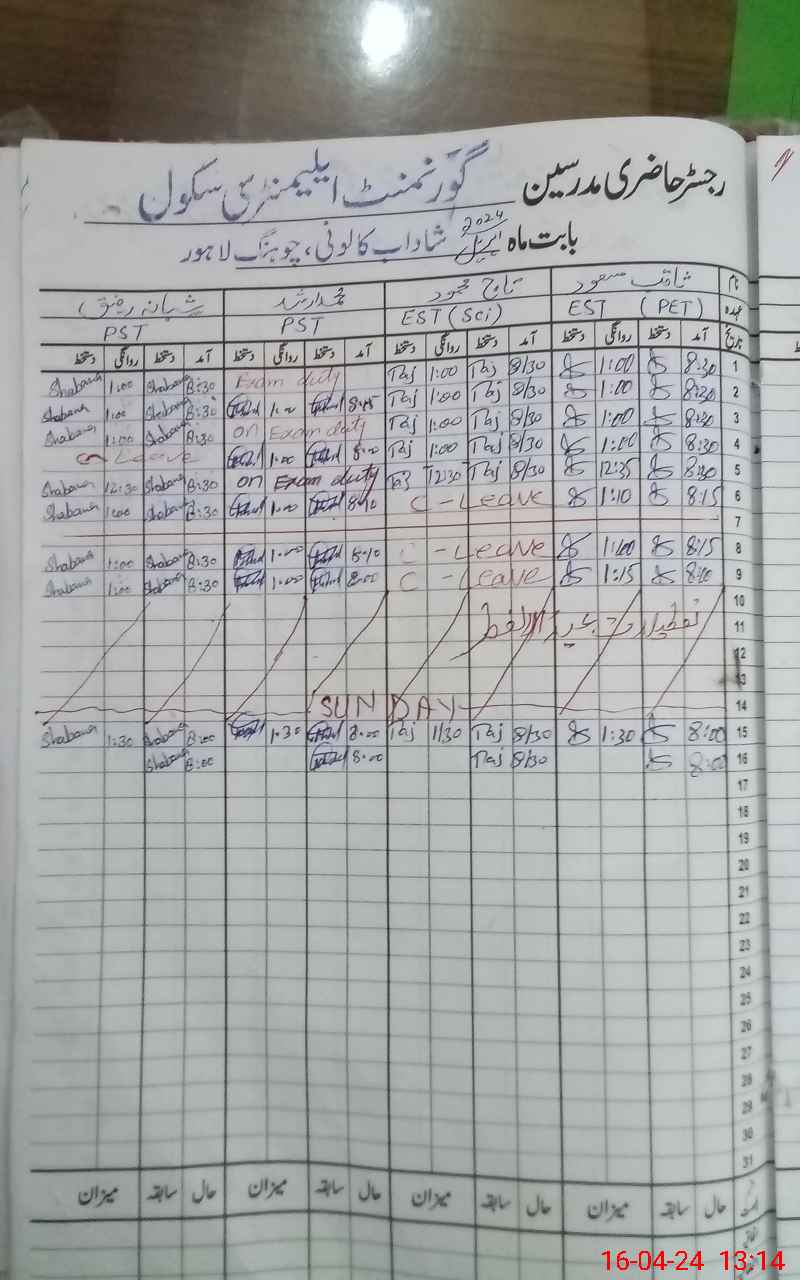 رجسٹر حاضری مدرسین گورنمنٹ ایلیمنٹری سکول
بابت ماہ اپریل 2024 شاداب کالونی، چوہنگ لاہور
نام ثاقب مسعود تاج محمود محمد ارشد شبانہ رفیق
عہدہ EST (PET) EST (Sci) PST PST
تاریخ آمد دستخط روانگی دستخط آمد دستخط روانگی دستخط آمد دستخط روانگی دستخط آمد دستخط روانگی دستخط
1 8:30 1:00 8/30 Taj 1:00 Taj Exam duty 8:30 Shabana 1:00 Shabana
2 8:30 1:00 8/30 Taj 1:00 Taj 8:30 Shabana 1:00 Shabana
3 8:30 1:00 8/30 Taj 1:00 Taj on Exam duty 8:30 Shabana 1:00 Shabana
4 8:30 1:00 8/30 Taj 1:00 Taj 8:00 1:00 Leave
5 8:30 12:35 8/30 Taj 12:30 Taj on Exam duty 8:30 Shabana 12:30 Shabana
6 8:15 1:10 C - Leave 8:10 1:00 8:30 Shabana 1:00 Shabana
7
8 8:15 1:00 C - Leave 8:10 1:00 8:30 Shabana 1:00 Shabana
9 1:15 C - Leave 8:00 1:00 8:30 Shabana 1:00 Shabana
10
11 تعطیلات عید الفطر
12
13
14 SUNDAY
15 8:00 1:30 8/30 Taj 1/30 Taj 8:00 1:30 8:00 Shabana 1:30 Shabana
16 8:00 8/30 Taj 8:00 8:00 Shabana
17
18
19
20
21
22
23
24
25
26
27
28
29
30
31
حال سابقہ میزان حال سابقہ میزان حال سابقہ میزان حال سابقہ میزان
16-04-24 13:14